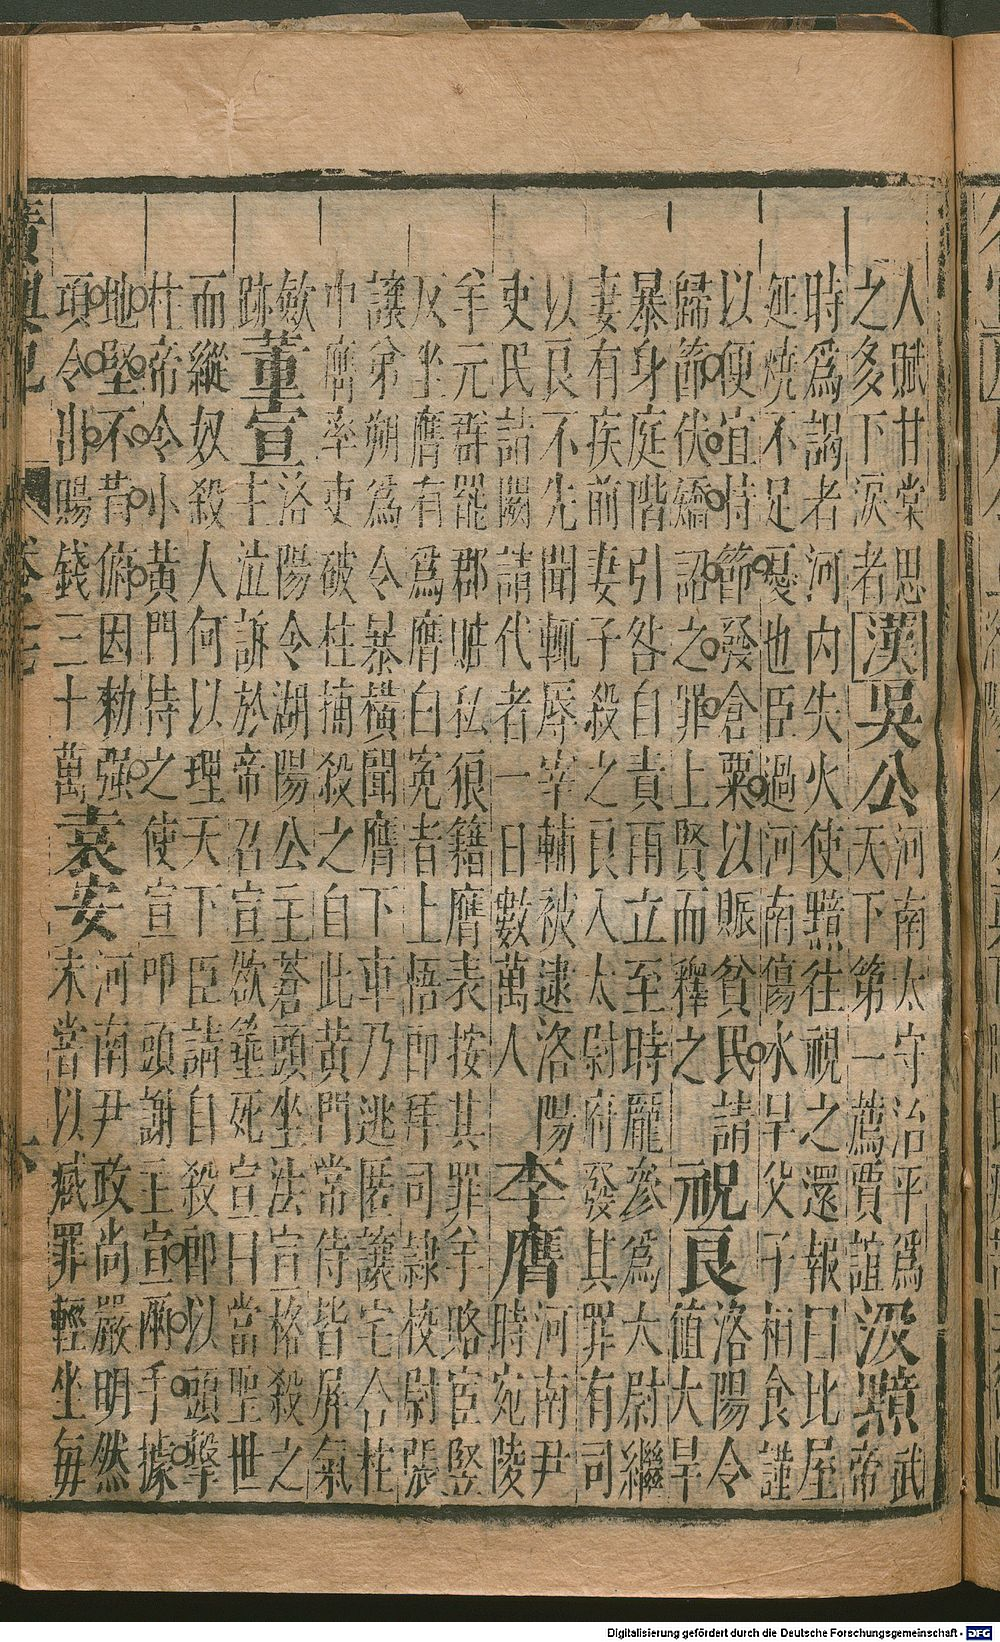 人賦甘棠思
之多下淚者
漢
吳公
河南太守治平爲
天下第一薦賈誼
汲黯
武
帝
時爲謁者河内失火使黯往視之還報曰比屋
延燒不足憂也臣過河南傷水旱父子相食謹
以便宜持節發倉粟以賑貧民請
歸節伏矯詔之罪上賢而釋之
祝良
洛陽令
值大旱
暴身庭階引咎自責雨立至時龐參爲太尉繼
妻有疾前妻子殺之良入太尉府發其罪有司
以良不先聞輒辱宰輔被逮洛陽
吏民詣闕請代者一日數萬人
李膺
河南尹
時宛陵
羊元群罷郡賍私狼籍膺表按其罪羊賂宦竪
反坐膺有爲膺白冤者上悟即拜司隸校尉張
讓弟朔爲令暴横聞膺下車乃逃匿讓宅合柱
中膺率吏破柱捕殺之自此黄門常侍皆屏氣
歛
跡
董宣
洛陽令湖陽公主蒼頭坐法宣格殺之
主泣訴於帝召宣欲箠死宣曰當聖世
而縱奴殺人何以理天下臣請自殺即以頭擊
柱帝令小黄門持之使宣叩頭謝主宣兩手據
地堅不肯俯因勑强
項令出賜錢三十萬
袁安
河南尹政尚嚴明然
未嘗以贓罪輕坐每
Digitalisierung gefördert durch die Deutsche Forschungsgemeinschaft - DFG